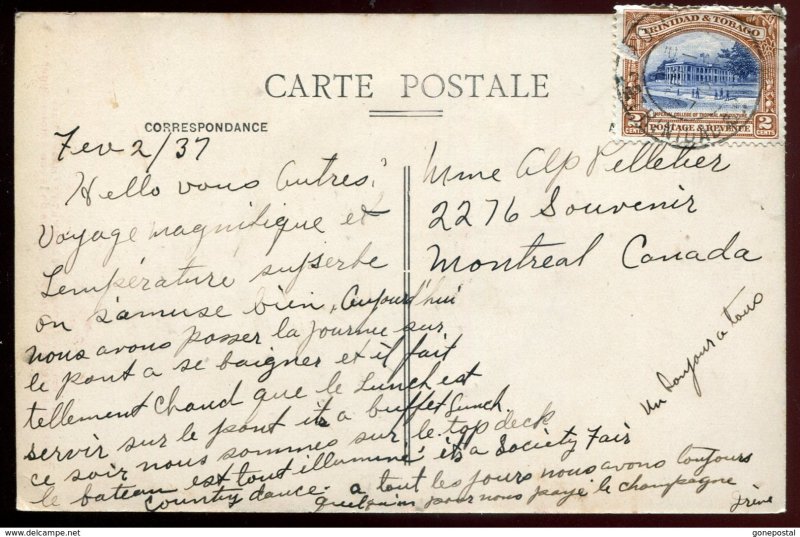 CARTE POSTALE
CORRESPONDANCE
TRINIDAD & TOBAGO
IMPERIAL COLLEGE OF TROPICAL AGRICULTURE
2 CENTS POSTAGE & REVENUE 2 CENTS
Fev 2/37
Hello vous autres,
Voyage magnifique et
température superbe
on s'amuse bien, Aujourd'hui
nous avons passer la journe sur
le pont a se baigner et il fait
tellement chaud que le Lunch est
servir sur le pont its a buffet Lunch
ce soir nous sommes sur le top deck
le bateau est tout illuminé its a Society Fair
Country dance. a tout les jours nous avons toujours
quelqu'un pour nous payé le champagne
Irène
Mme Alp Pelletier
2276 Souvenir
Montreal Canada
un Bonjour a tous
© genepostal
https://www.delcampe.net
genepostal